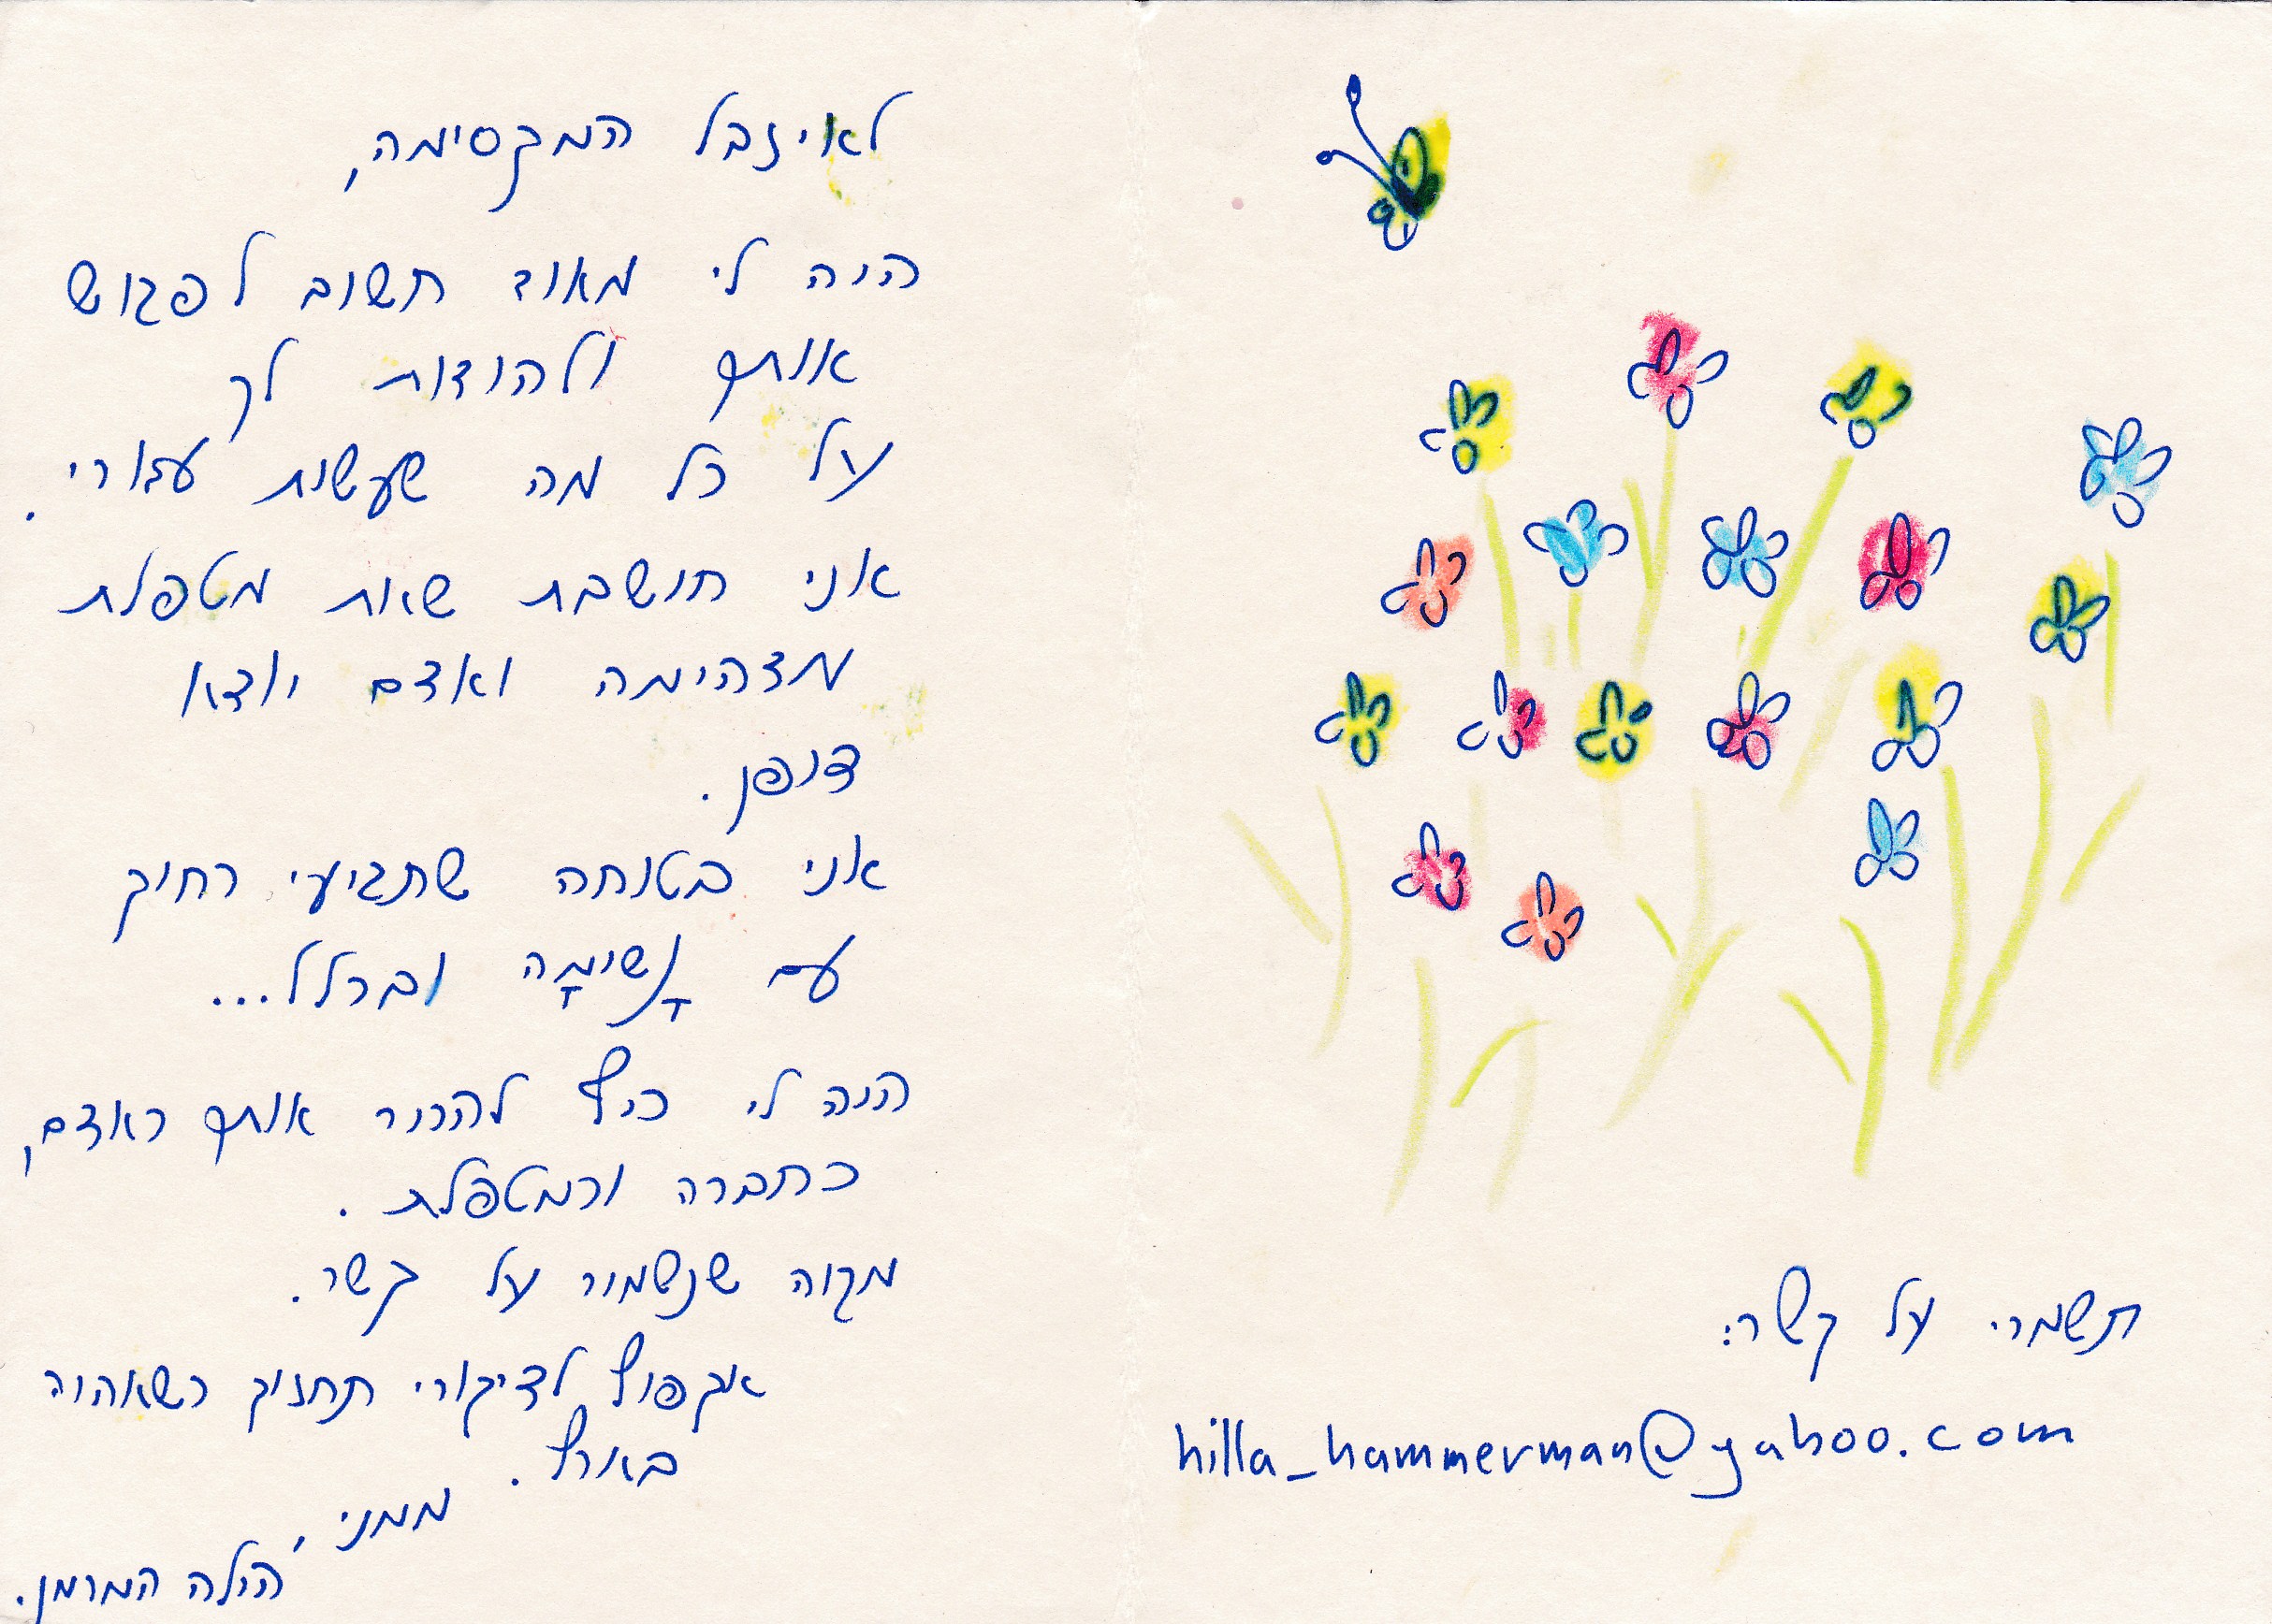 לאיזבל המקסימה,
היה לי מאוד חשוב לפגוש
אותך ולהודות לך
על כל מה שעשית עבורי.
אני חושבת שאת מטפלת
מדהימה ואדם יוצא
דופן.
אני בטוחה שתגיעי רחוק
עם נָשימָה ובכלל...
היה לי כיף להכיר אותך כאדם,
כחברה וכמטפלת.
מקוה שנשמור על קשר.
אקפוץ לדיקורי תחזוק כשאהיה
בארץ.
ממני,
הילה המרמן.
תשמרי על קשר:
hilla_hammerman@yahoo.com